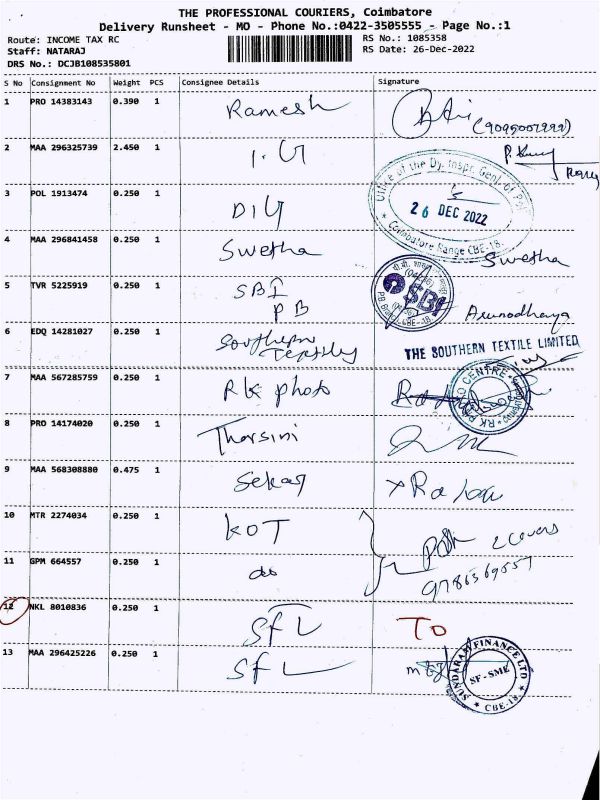 THE PROFESSIONAL COURIERS, Coimbatore
Delivery Runsheet - MO - Phone No.:0422-3505555 - Page No.:1
Route: INCOME TAX RC
RS No.: 1085358
Staff: NATARAJ
RS Date: 26-Dec-2022
DRS No.: DCJB108535801
S No Consignment No Weight PCS Consignee Details Signature
1 PRO 14383143 0.390 1 Ramesh
2 MAA 296325739 2.450 1 I.G
3 POL 1913474 0.250 1 DIG
Office of the Dy. Inspr. Genl. of Pol
26 DEC 2022
Coimbatore Range CBE-18.
4 MAA 296841458 0.250 1 Swetha Swetha
5 TVR 5225919 0.250 1 SBI
PB
SBI
CBE-18
Arunodhaya
6 EDQ 14281027 0.250 1 Southern
Textiles
THE SOUTHERN TEXTILE LIMITED
7 MAA 567285759 0.250 1 RK photo
8 PRO 14174020 0.250 1 Tharsini
9 MAA 568308880 0.475 1 Sekar
10 MTR 2274034 0.250 1 KOT
2 covers
11 GPM 664557 0.250 1 do
12 NKL 8010836 0.250 1 SFL TO
13 MAA 296425226 0.250 1 SFL
SUNDARAM FINANCE LTD
SF - SME
CBE-18